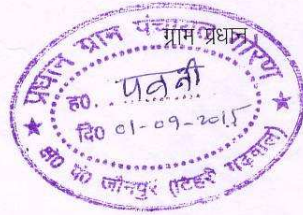 ग्राम प्रधान
प्रधान ग्राम पंचायत
ह0. पवनी
दि0 01-09-2015
क्षे0 पं0 जौनपुर (टिहरी गढ़वाल)